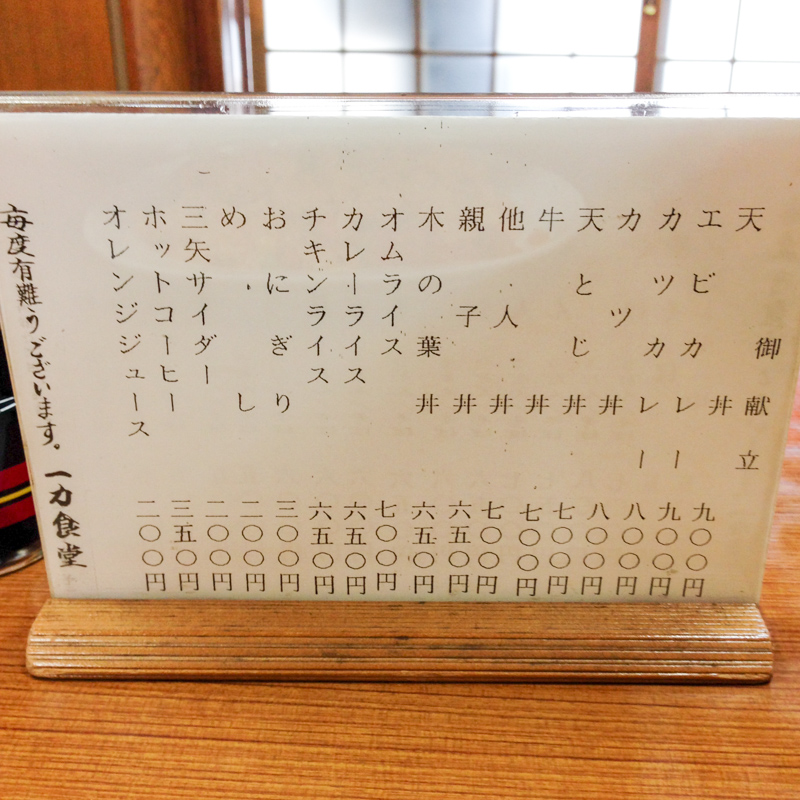 御献立
天丼 九〇〇円
エビカレー 九〇〇円
カツカレー 八〇〇円
カツ丼 八〇〇円
天とじ丼 七〇〇円
牛丼 七〇〇円
他人丼 七〇〇円
親子丼 六五〇円
木の葉丼 六五〇円
オムライス 七〇〇円
カレーライス 六五〇円
チキンライス 六五〇円
おにぎり 三〇〇円
めし 二〇〇円
三矢サイダー 二〇〇円
ホットコーヒー 三五〇円
オレンジジュース 二〇〇円
毎度有難うございます。一力食堂